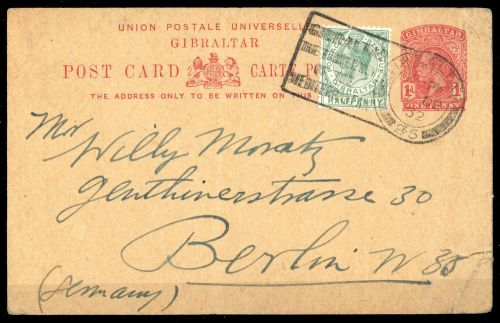 UNION POSTALE UNIVERSELLE
GIBRALTAR
POST CARD CARTE POSTALE
THE ADDRESS ONLY TO BE WRITTEN ON THIS
GIBRALTAR
HALFPENNY
GIBRALTAR
1D
ONE PENNY
32
Mr
Willy Moratz
Genthinerstrasse 30
Berlin W 35
(Germany)